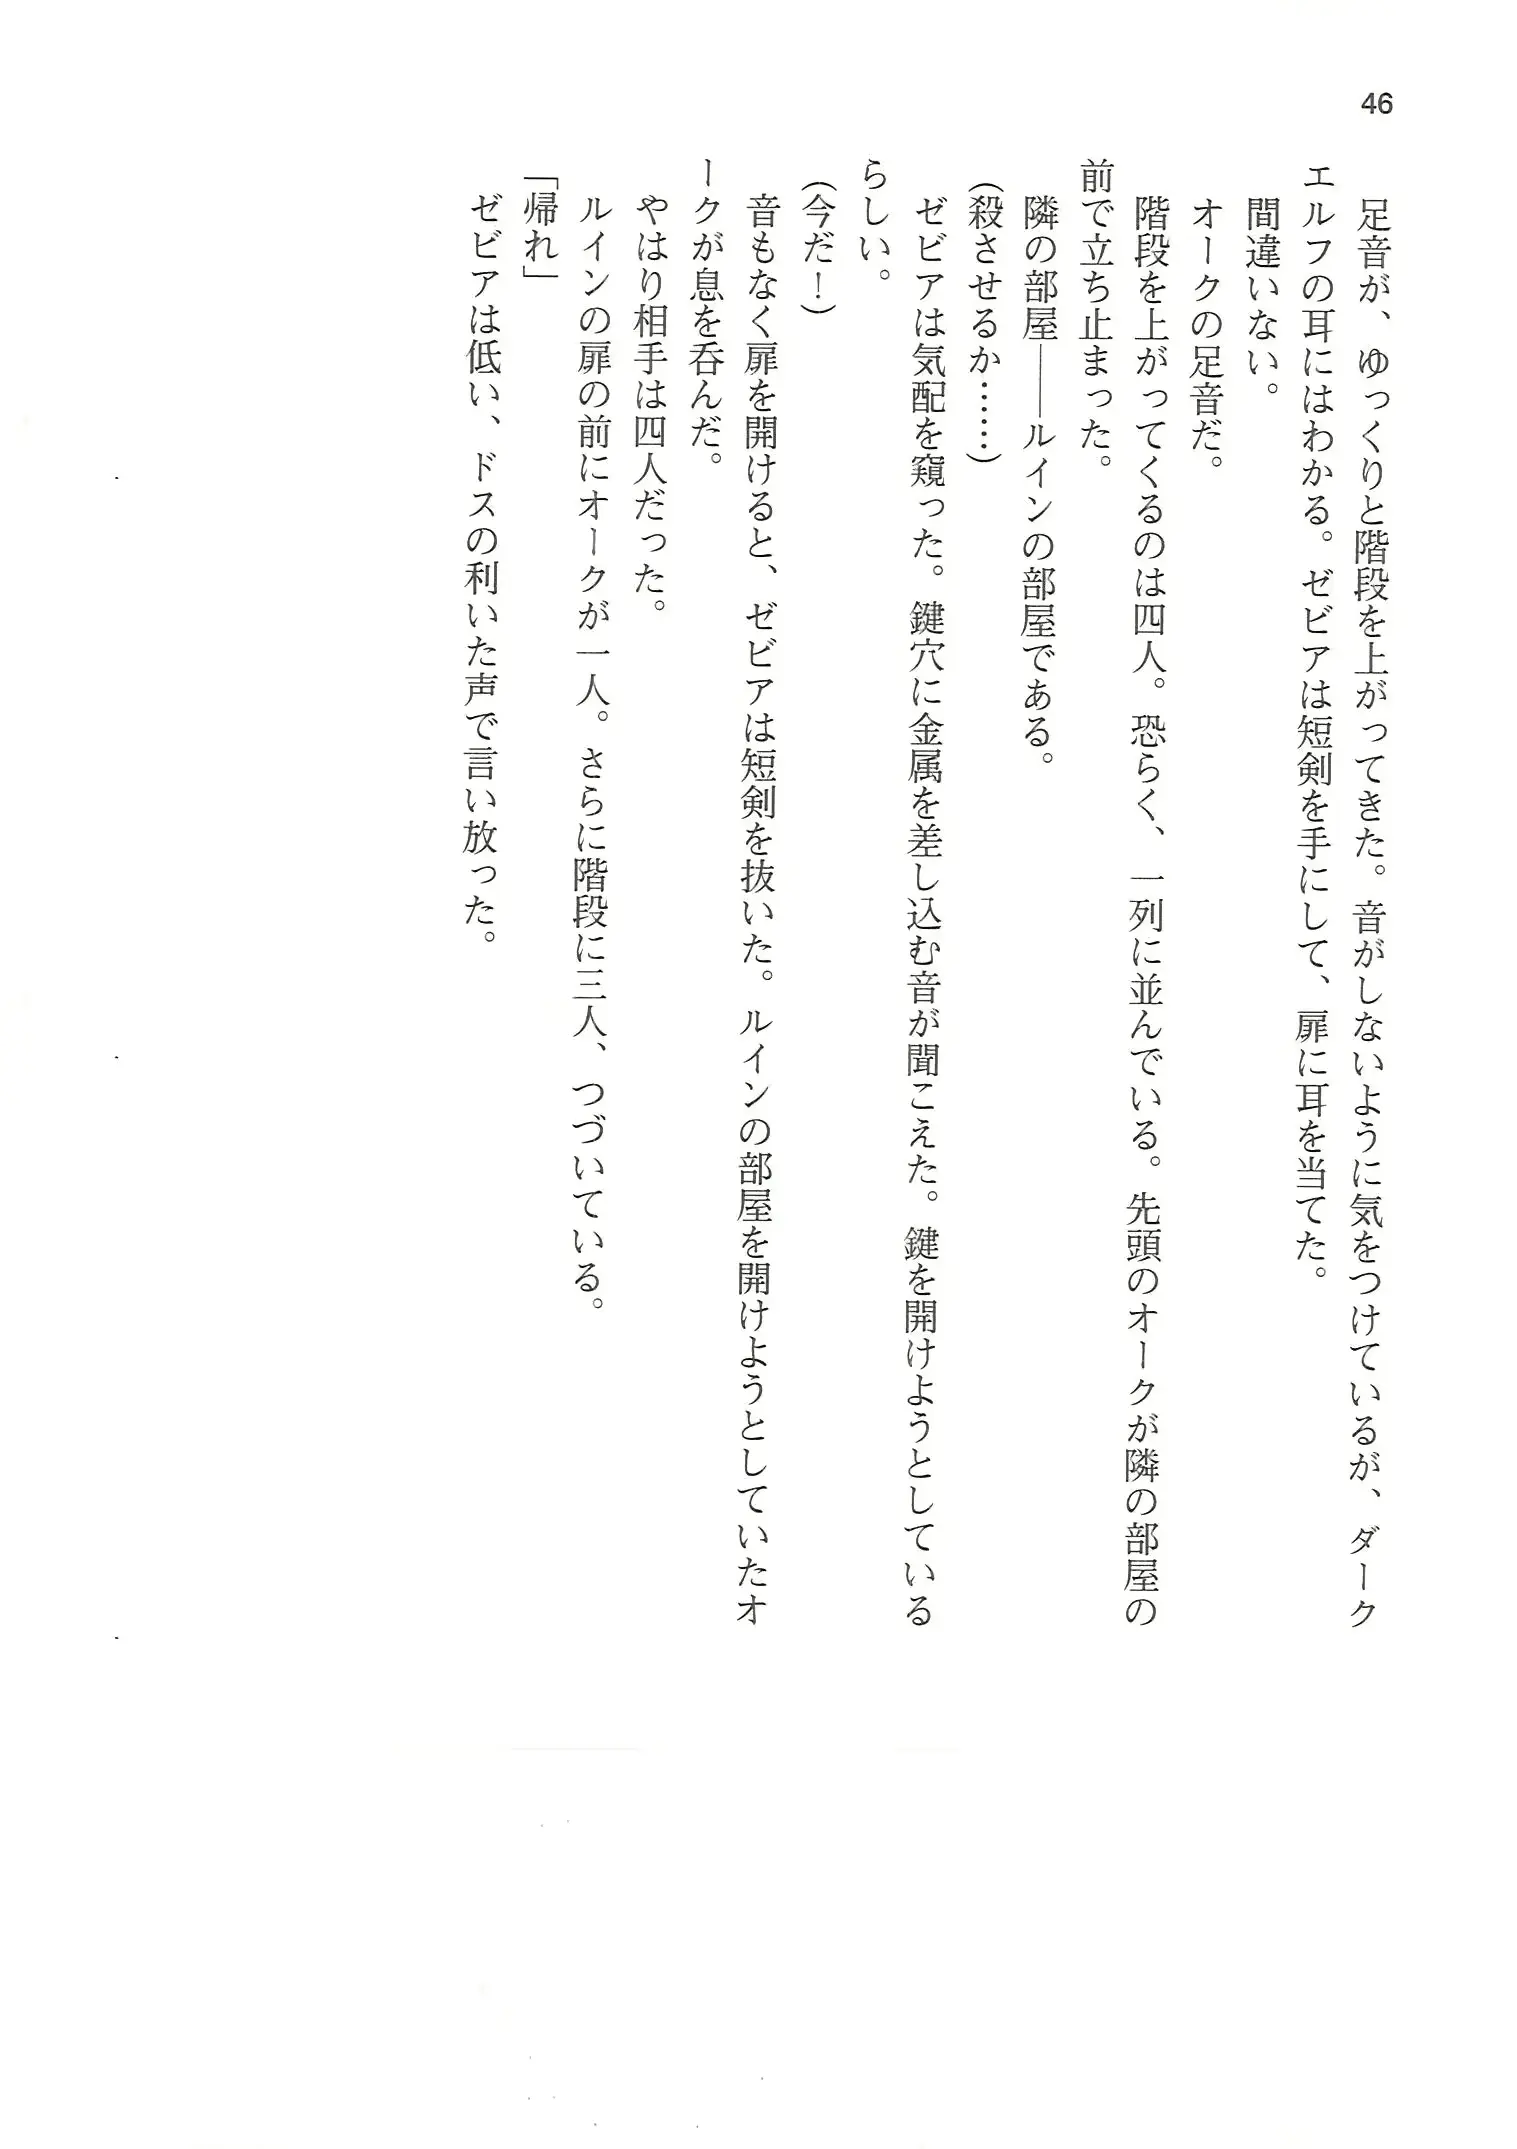 46
足音が、ゆっくりと階段を上がってきた。音がしないように気をつけているが、ダーク
エルフの耳にはわかる。ゼビアは短剣を手にして、扉に耳を当てた。
間違いない。
オークの足音だ。
階段を上がってくるのは四人。恐らく、一列に並んでいる。先頭のオークが隣の部屋の
前で立ち止まった。
隣の部屋――ルインの部屋である。
(殺させるか……)
ゼビアは気配を窺った。鍵穴に金属を差し込む音が聞こえた。鍵を開けようとしている
らしい。
(今だ!)
音もなく扉を開けると、ゼビアは短剣を抜いた。ルインの部屋を開けようとしていたオ
ークが息を呑んだ。
やはり相手は四人だった。
ルインの扉の前にオークが一人。さらに階段に三人、つづいている。
「帰れ」
ゼビアは低い、ドスの利いた声で言い放った。